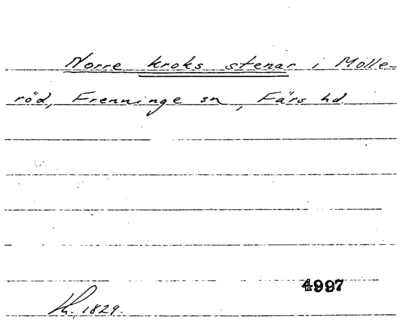 Norre kroks stenar i Mölle-
röd, Frenninge sn, Färs hd
4997
1829.